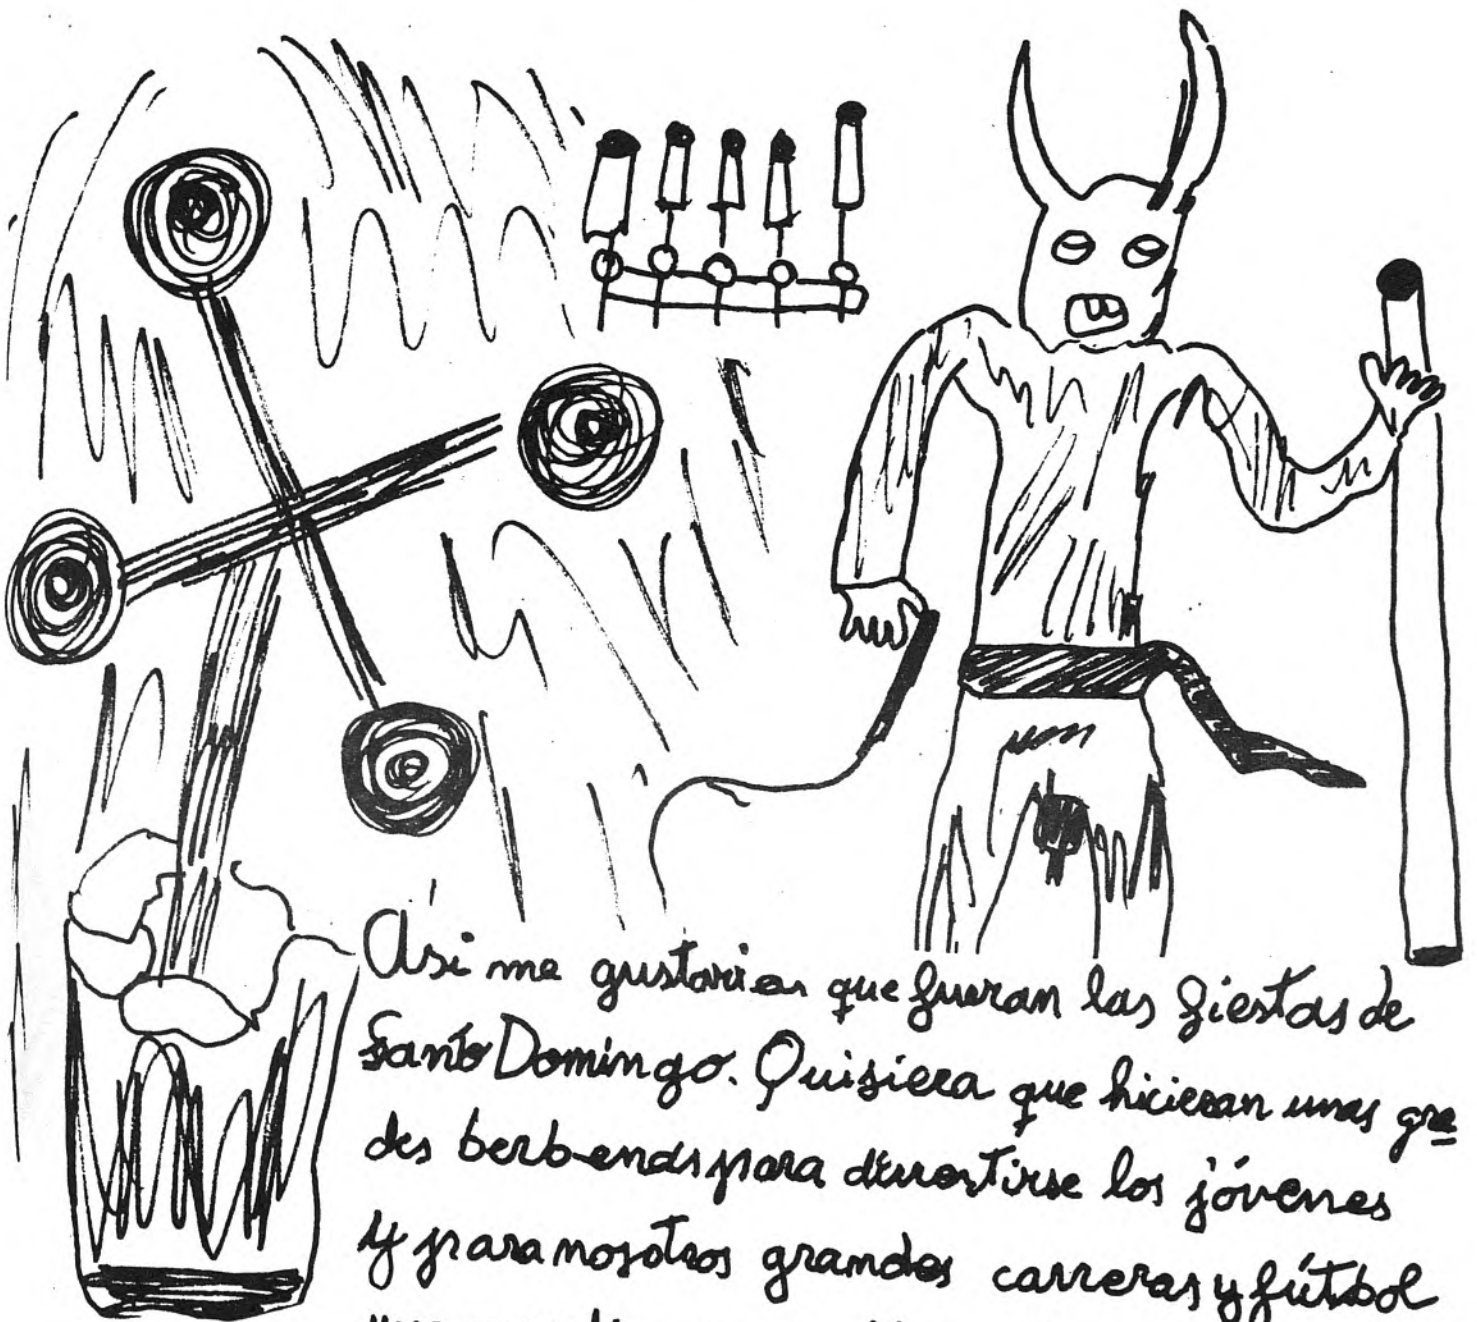 Así me gustaria que fueran las fiestas de
Santo Domingo. Quisiera que hicieran unas gra
des berbenas para divertirse los jóvenes
y para nosotros grandes carreras y fútbol